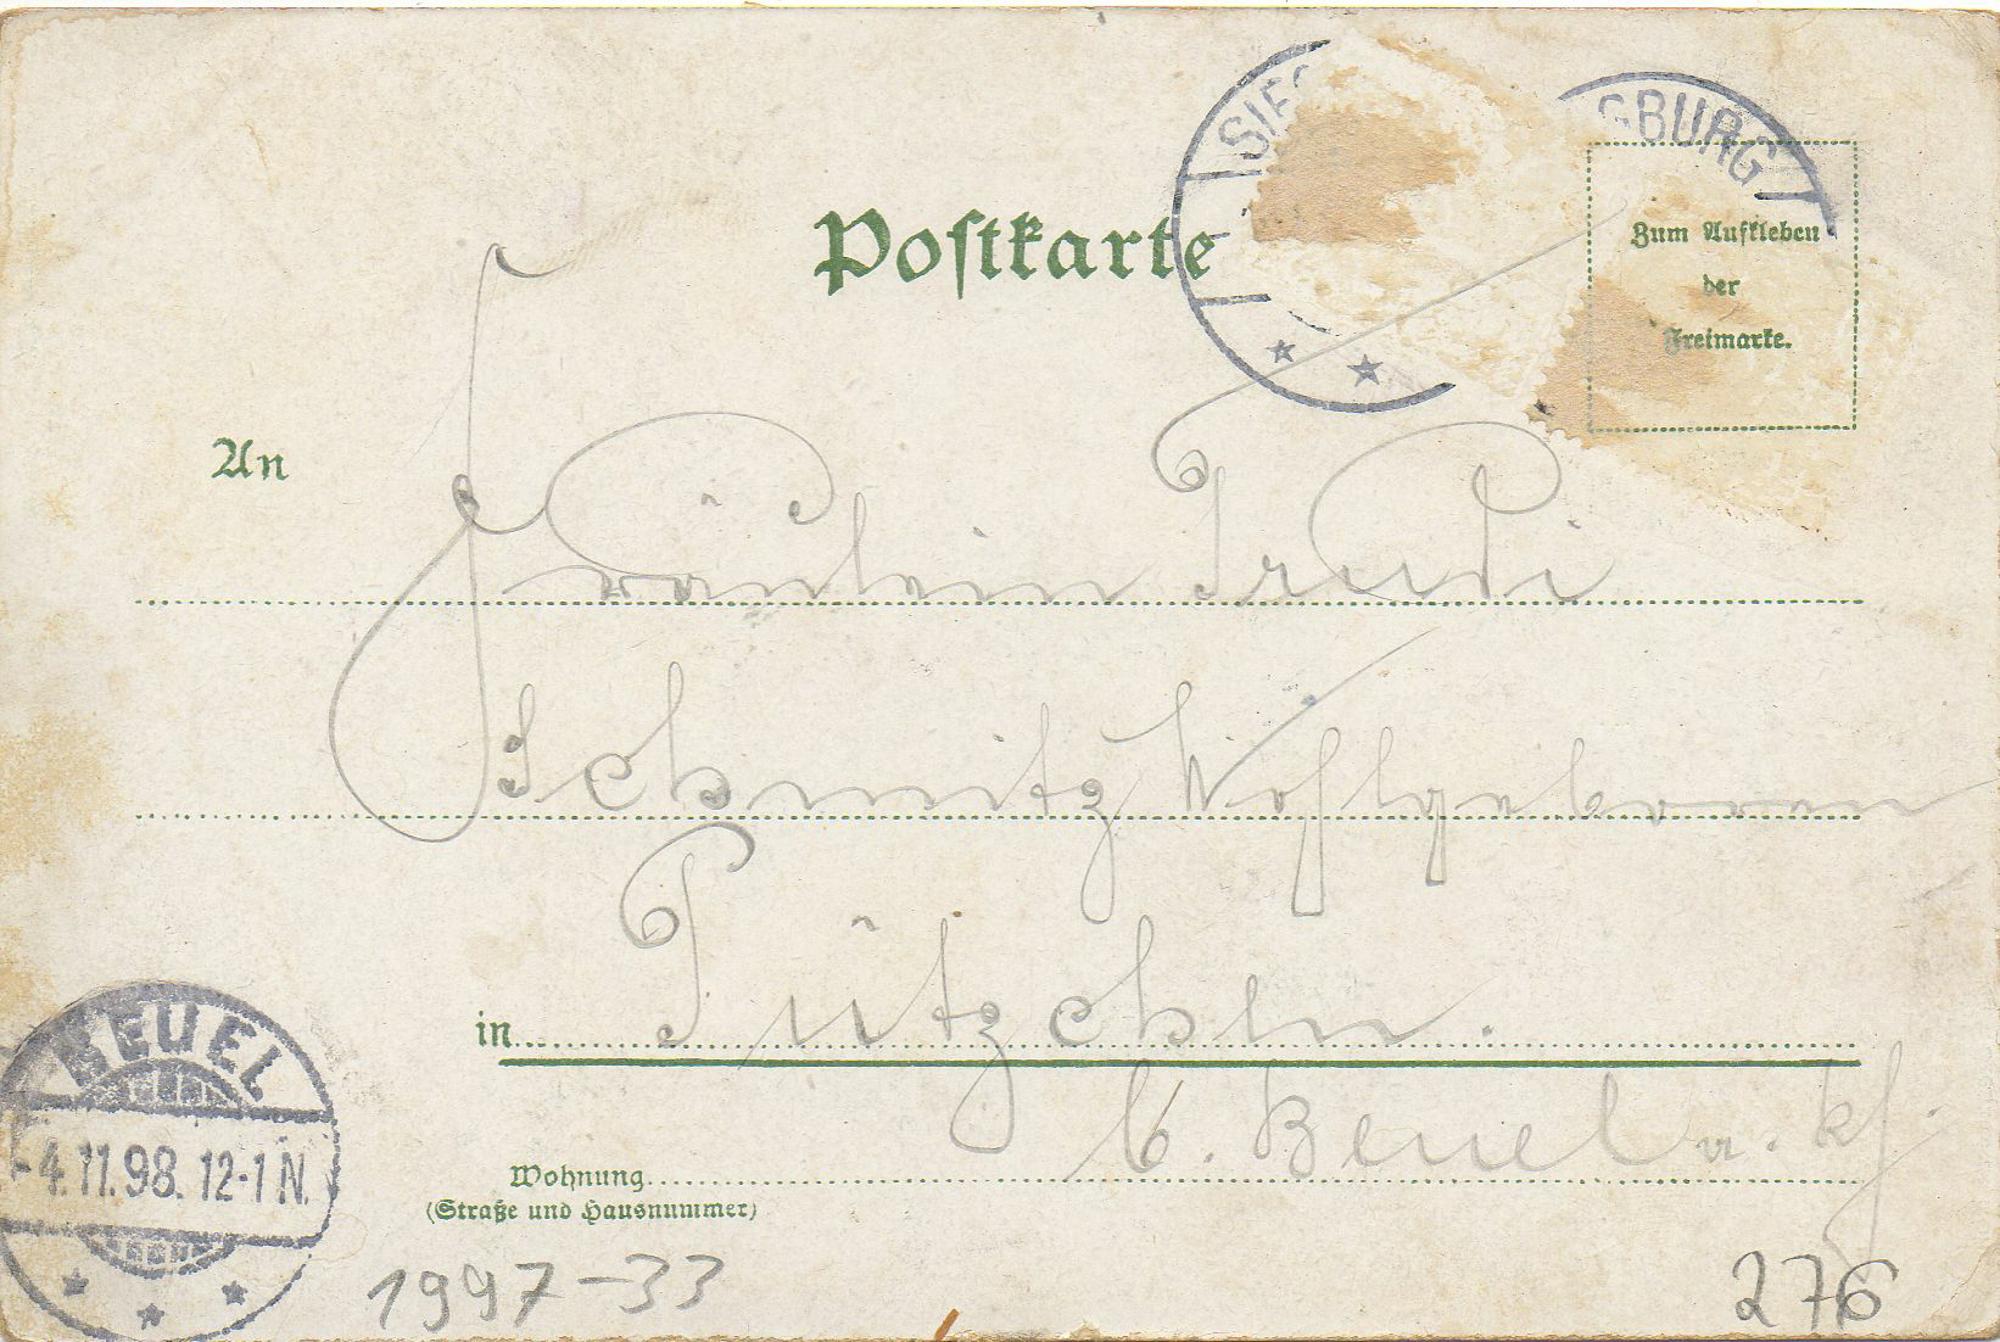 SIEG
GBURG
Postkarte
Zum Aufkleben
der
Freimarke.
An
Fräulein Trudi
Schmitz Wohlgeboren
in Pützchen.
b. Beuel a. Rh.
Wohnung
(Straße und Hausnummer)
BEUEL
-4.11.98. 12-1 N.
1997-33
276